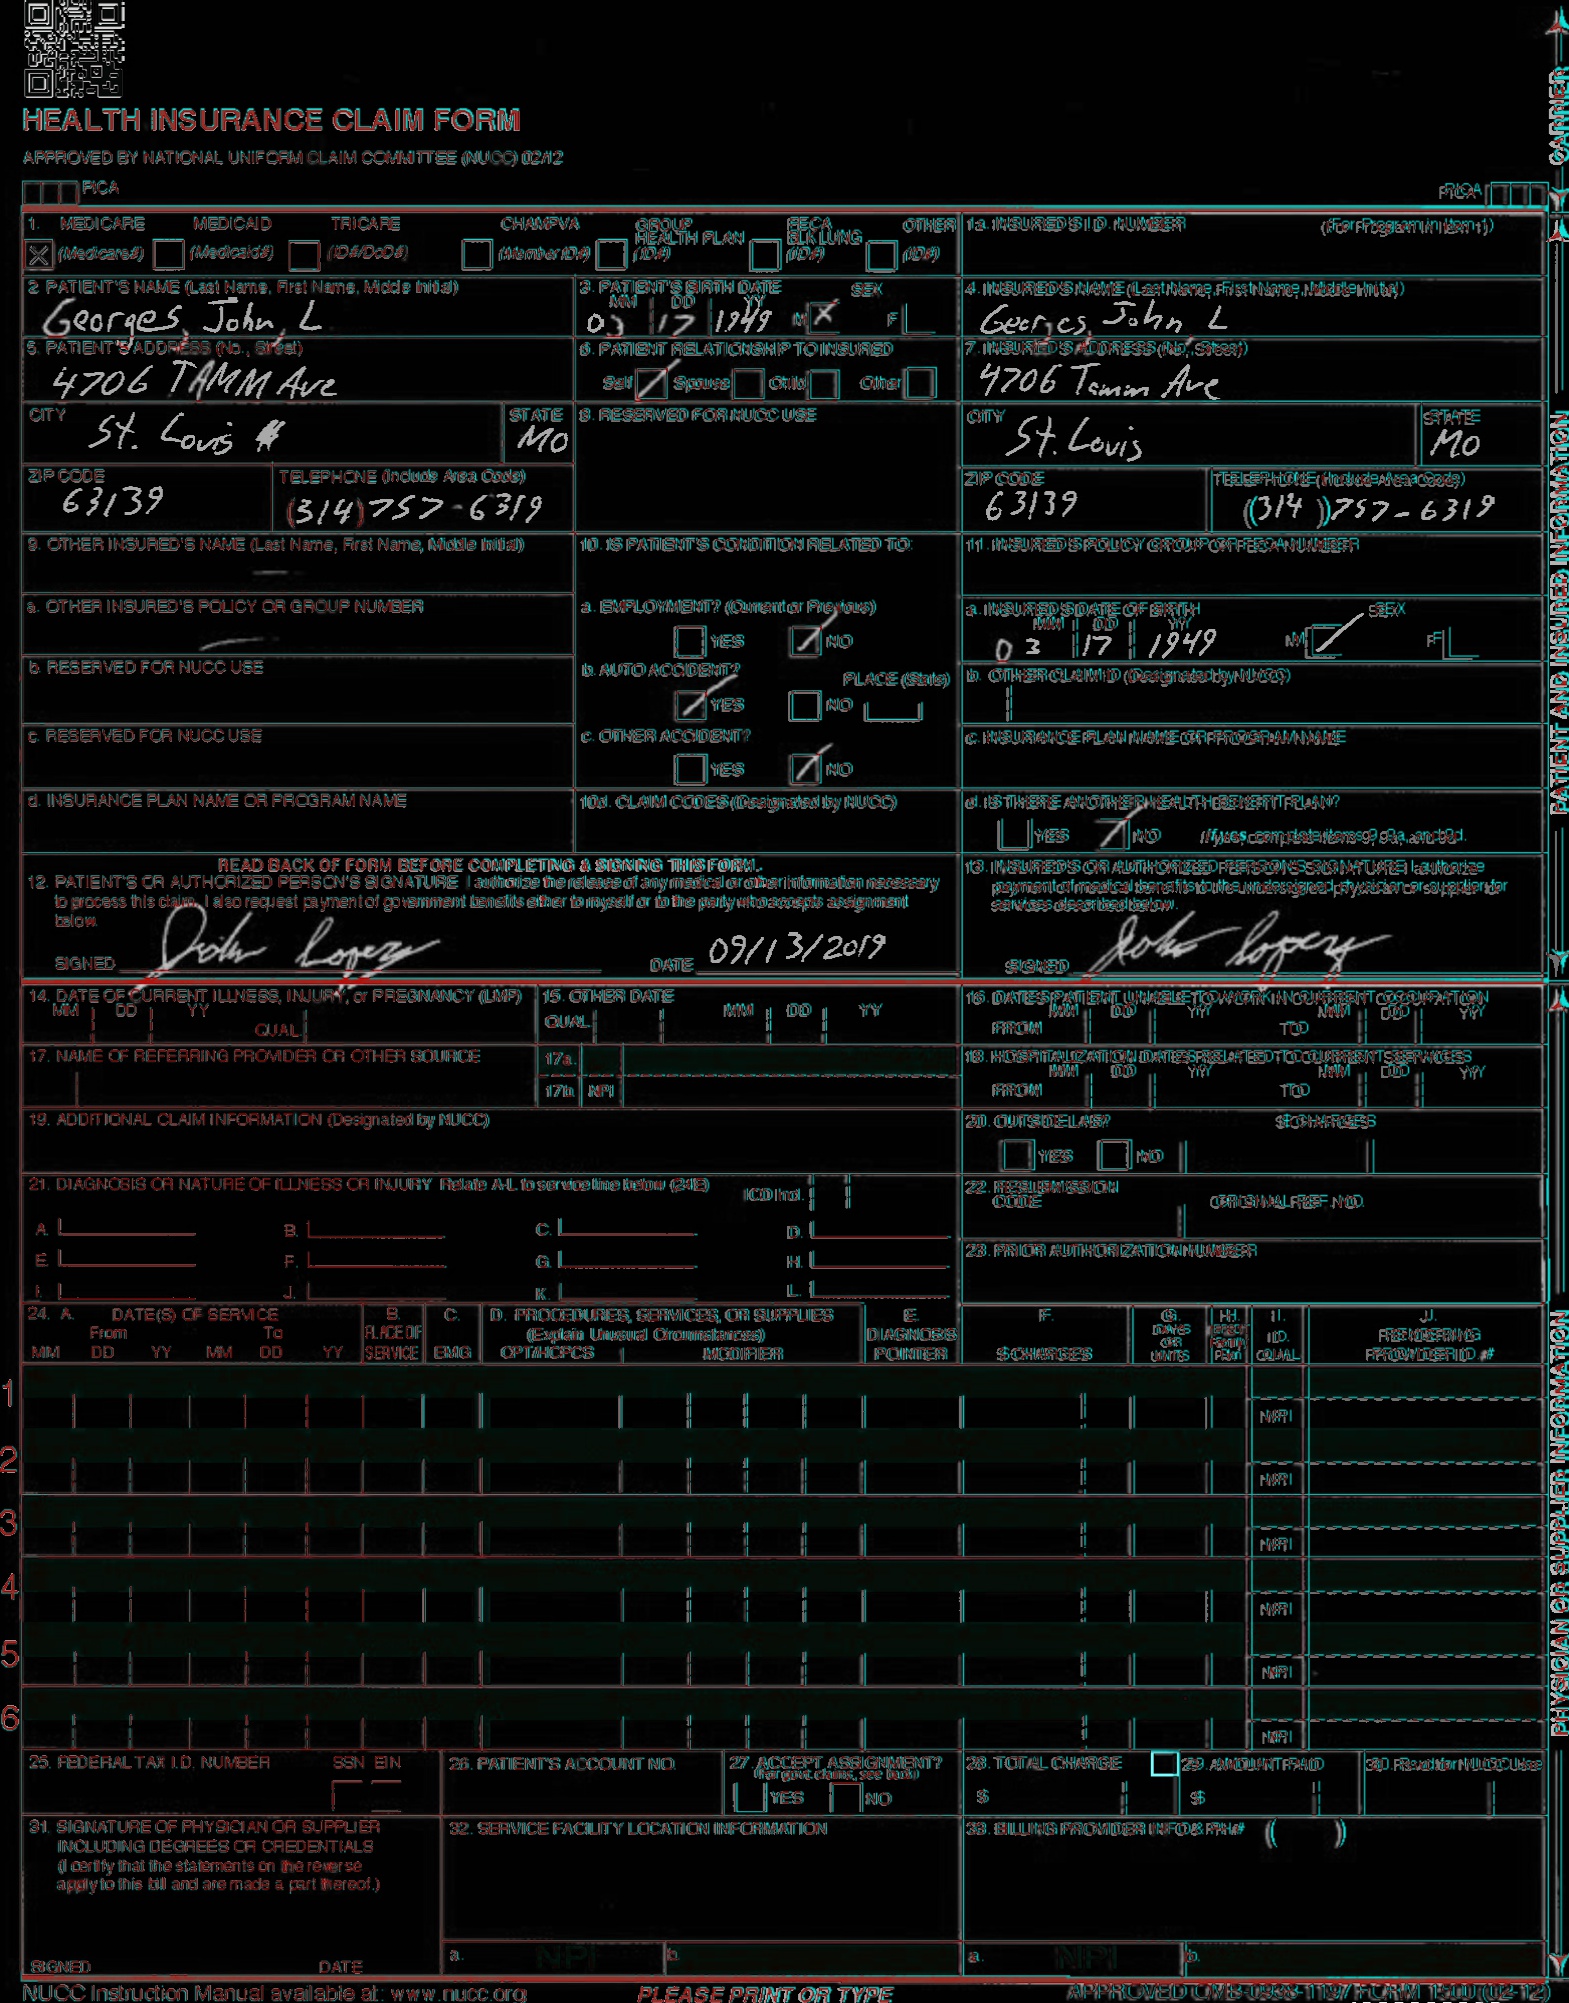 HEALTH INSURANCE CLAIM FORM
APPROVED BY NATIONAL UNIFORM CLAIM COMMITTEE (NUCC) 02/12
PICA
PICA
CARRIER
1. MEDICARE MEDICAID TRICARE CHAMPVA GROUP HEALTH PLAN FECA BLK LUNG OTHER
(Medicare#) (Medicaid#) (ID#/DoD#) (Member ID#) (ID#) (ID#) (ID#)
1a. INSURED'S I.D. NUMBER (For Program in Item 1)
2. PATIENT'S NAME (Last Name, First Name, Middle Initial)
Georges, John, L
3. PATIENT'S BIRTH DATE SEX
MM DD YY
03 17 1949 M X F
4. INSURED'S NAME (Last Name, First Name, Middle Initial)
Georges, John, L
5. PATIENT'S ADDRESS (No., Street)
4706 TAMM Ave
6. PATIENT RELATIONSHIP TO INSURED
Self Spouse Child Other
7. INSURED'S ADDRESS (No., Street)
4706 Tamm Ave
CITY
St. Louis
STATE
MO
8. RESERVED FOR NUCC USE
CITY
St. Louis
STATE
MO
ZIP CODE
63139
TELEPHONE (Include Area Code)
(314) 757-6319
ZIP CODE
63139
TELEPHONE (Include Area Code)
(314) 757-6319
9. OTHER INSURED'S NAME (Last Name, First Name, Middle Initial)
10. IS PATIENT'S CONDITION RELATED TO:
11. INSURED'S POLICY GROUP OR FECA NUMBER
a. OTHER INSURED'S POLICY OR GROUP NUMBER
a. EMPLOYMENT? (Current or Previous)
YES NO
a. INSURED'S DATE OF BIRTH SEX
MM DD YY
03 17 1949 M F
b. RESERVED FOR NUCC USE
b. AUTO ACCIDENT? PLACE (State)
YES NO
b. OTHER CLAIM ID (Designated by NUCC)
c. RESERVED FOR NUCC USE
c. OTHER ACCIDENT?
YES NO
c. INSURANCE PLAN NAME OR PROGRAM NAME
d. INSURANCE PLAN NAME OR PROGRAM NAME
10d. CLAIM CODES (Designated by NUCC)
d. IS THERE ANOTHER HEALTH BENEFIT PLAN?
YES NO If yes, complete items 9, 9a, and 9d.
READ BACK OF FORM BEFORE COMPLETING & SIGNING THIS FORM.
12. PATIENT'S OR AUTHORIZED PERSON'S SIGNATURE I authorize the release of any medical or other information necessary
to process this claim. I also request payment of government benefits either to myself or to the party who accepts assignment
below.
SIGNED John Lopez DATE 09/13/2019
13. INSURED'S OR AUTHORIZED PERSON'S SIGNATURE I authorize
payment of medical benefits to the undersigned physician or supplier for
services described below.
SIGNED John Lopez
PATIENT AND INSURED INFORMATION
14. DATE OF CURRENT ILLNESS, INJURY, or PREGNANCY (LMP)
MM DD YY
QUAL.
15. OTHER DATE
QUAL. MM DD YY
16. DATES PATIENT UNABLE TO WORK IN CURRENT OCCUPATION
MM DD YY MM DD YY
FROM TO
17. NAME OF REFERRING PROVIDER OR OTHER SOURCE
17a.
17b. NPI
18. HOSPITALIZATION DATES RELATED TO CURRENT SERVICES
MM DD YY MM DD YY
FROM TO
19. ADDITIONAL CLAIM INFORMATION (Designated by NUCC)
20. OUTSIDE LAB? $ CHARGES
YES NO
21. DIAGNOSIS OR NATURE OF ILLNESS OR INJURY Relate A-L to service line below (24E)
ICD Ind.
A. B. C. D.
E. F. G. H.
I. J. K. L.
22. RESUBMISSION CODE ORIGINAL REF. NO.
23. PRIOR AUTHORIZATION NUMBER
24. A. DATE(S) OF SERVICE
From To
MM DD YY MM DD YY
B. PLACE OF SERVICE
C. EMG
D. PROCEDURES, SERVICES, OR SUPPLIES
(Explain Unusual Circumstances)
CPT/HCPCS MODIFIER
E. DIAGNOSIS POINTER
F. $ CHARGES
G. DAYS OR UNITS
H. EPSDT Family Plan
I. ID. QUAL.
J. RENDERING PROVIDER ID. #
1
NPI
2
NPI
3
NPI
4
NPI
5
NPI
6
NPI
PHYSICIAN OR SUPPLIER INFORMATION
25. FEDERAL TAX I.D. NUMBER SSN EIN
26. PATIENT'S ACCOUNT NO.
27. ACCEPT ASSIGNMENT?
(For govt. claims, see back)
YES NO
28. TOTAL CHARGE
$
29. AMOUNT PAID
$
30. Rsvd for NUCC Use
31. SIGNATURE OF PHYSICIAN OR SUPPLIER
INCLUDING DEGREES OR CREDENTIALS
(I certify that the statements on the reverse
apply to this bill and are made a part thereof.)
SIGNED DATE
32. SERVICE FACILITY LOCATION INFORMATION
a. NPI b.
33. BILLING PROVIDER INFO & PH# ( )
a. NPI b.
NUCC Instruction Manual available at: www.nucc.org
PLEASE PRINT OR TYPE
APPROVED OMB-0938-1197 FORM 1500 (02-12)